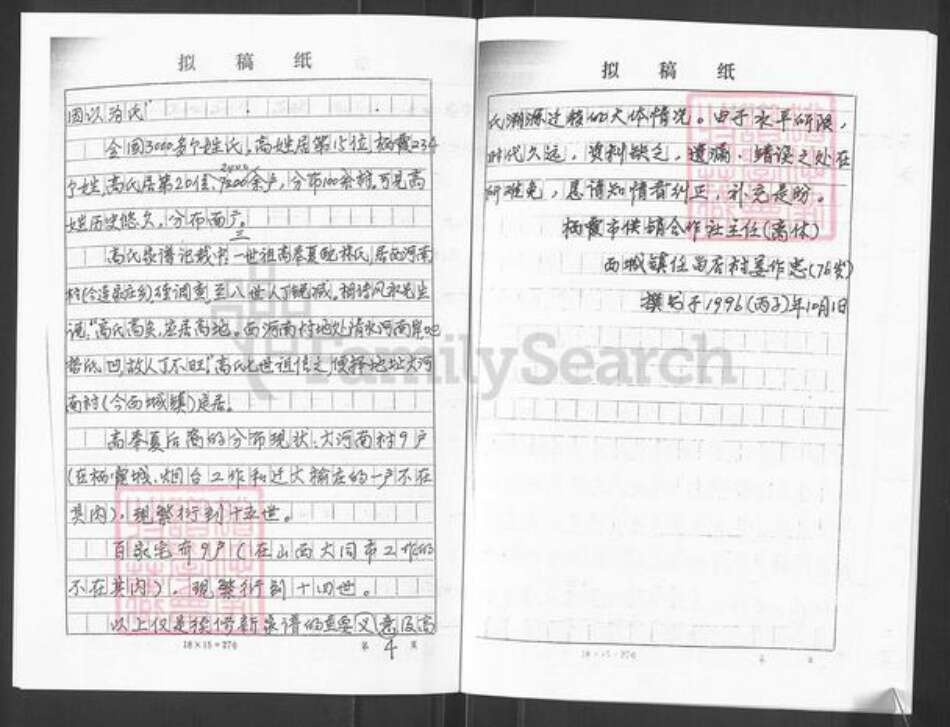 拟 稿 纸
因以为氏"
全国3000多个姓氏,高姓居第15位,栖霞234
个姓,高氏居第20位,7200余户,分布100余村。可见高
姓历史悠久,分布面广。
三
高氏谱记载 一世祖高奉夏配林氏,居西河南
村 至八世人丁锐减。相传风水先生
说,"高氏高矣,应居高地。西河南村地处清水河南岸,地
势低凹,故人丁不旺。"高氏七世祖信之,便择地址大河
南村(今西城镇)定居。
高奉夏后裔的分布现状:大河南村9户
(在栖霞城、烟台工作和迁大榆庄的一户不在
其内),现繁衍到十五世。
百家宅夼9户(在山西大同市工作的
不在其内),现繁衍到十四世。
以上仅是续修新家谱的重要义意及高
18×15=270
第 4 页
拟 稿 纸
氏渊源迁移的大体情况。由于水平所限,
时代久远,资料缺乏,遗漏、错误之处在
所难免,恳请知情者纠正,补充是盼。
栖霞市供销合作社主任(离休)
西城镇任留店村姜作忠(76岁)
撰写于1996(丙子)年10月1日
18×15=270
第 页
FamilySearch